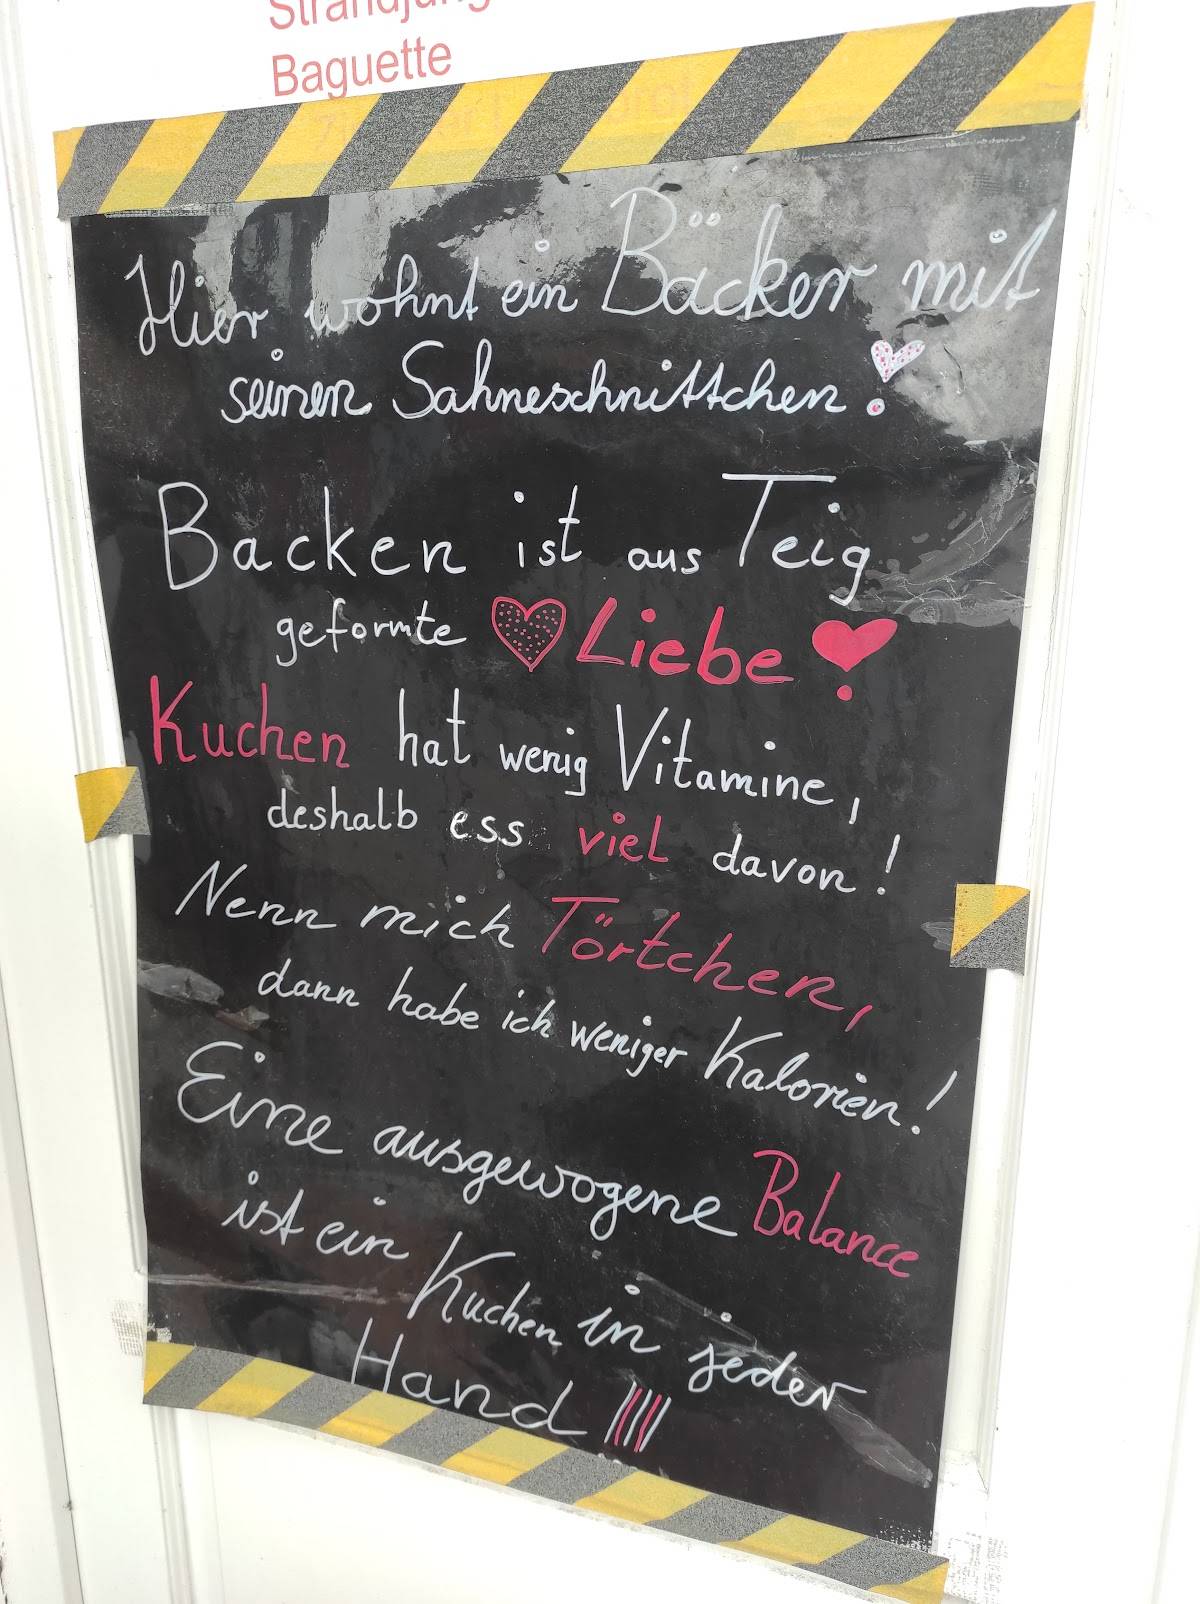 Baguette
Hier wohnt ein Bäcker mit
seinen Sahneschnittchen!
Backen ist aus Teig
geformte Liebe!
Kuchen hat wenig Vitamine,
deshalb ess viel davon!
Nenn mich Törtchen,
dann habe ich weniger Kalorien!
Eine ausgewogene Balance
ist ein Kuchen in jeder
Hand !!!!